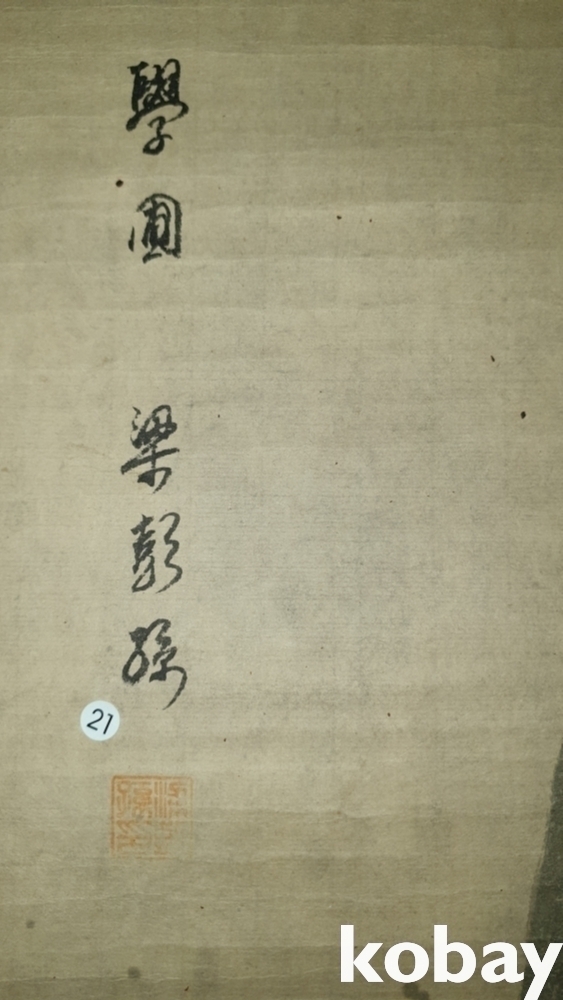 學圃 梁彭孫
21
kobay